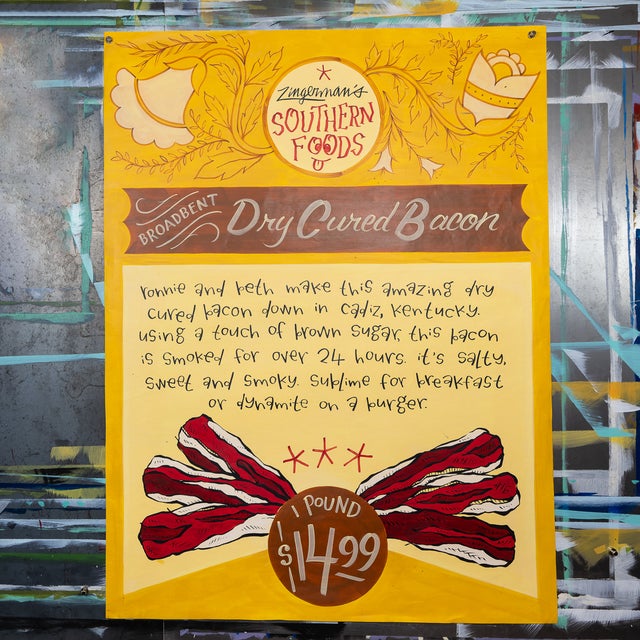 Zingerman's
SOUTHERN
FOODS
BROADBENT
Dry Cured Bacon
ronnie and beth make this amazing dry
cured bacon down in cadiz, kentucky.
using a touch of brown sugar, this bacon
is smoked for over 24 hours. it's salty,
sweet and smoky. sublime for breakfast
or dynamite on a burger.
1 POUND
$14.99